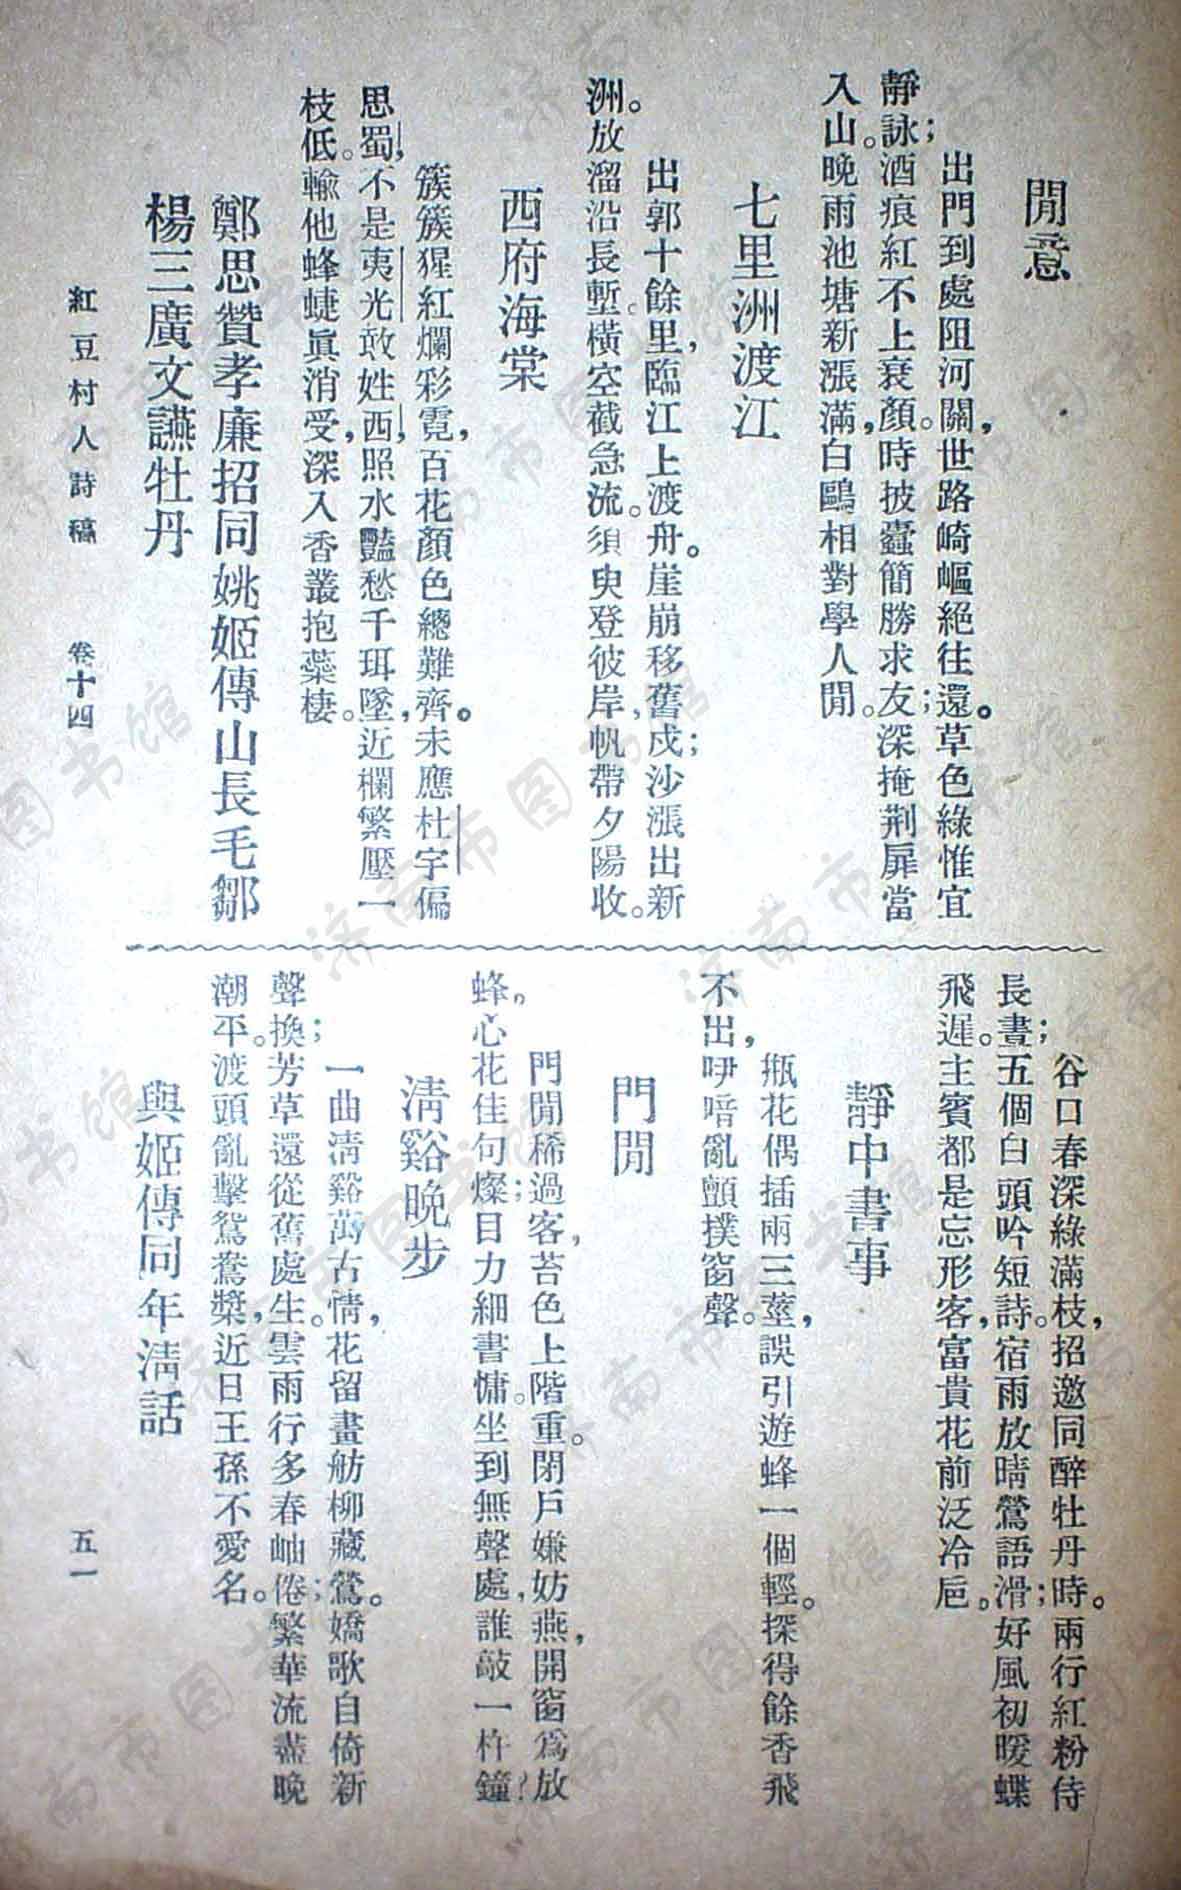 閒意
出門到處阻河關，世路崎嶇絕往還。草色綠惟宜
靜詠；酒痕紅不上衰顏。時披蠹簡勝求友；深掩荆扉當
入山。晚雨池塘新漲滿，白鷗相對學人閒。
七里洲渡江
出郭十餘里，臨江上渡舟。崖崩移舊戍；沙漲出新
洲。放溜沿長塹。橫空截急流。須臾登彼岸，帆帶夕陽收。
西府海棠
簇簇猩紅爛彩霓，百花顏色總難齊。未應杜宇偏
思蜀，不是夷光敢姓西，照水豔愁千珥墜，近欄繁壓一
枝低。輸他蜂蜨眞消受，深入香叢抱蘂棲。
鄭思贊孝廉招同姚姬傳山長毛鄒
楊三廣文讌牡丹
谷口春深綠滿枝，招邀同醉牡丹時。兩行紅粉侍
長晝；五個白頭吟短詩。宿雨放晴鶯語滑；好風初暖蝶
飛遲。主賓都是忘形客，富貴花前泛冷巵。
靜中書事
瓶花偶插兩三莖，誤引遊蜂一個輕。探得餘香飛
不出，咿喑亂顫撲窗聲。
門閒
門閒稀過客，苔色上階重。閉戶嫌妨燕，開窗爲放
蜂。心花佳句燦；目力細書慵。坐到無聲處，誰敲一杵鐘？
淸谿晚步
一曲淸谿萬古情，花留畫舫柳藏鶯。嬌歌自倚新
聲換；芳草還從舊處生。雲雨行多春岫倦；繁華流盡晚
潮平。渡頭亂擊鴛鴦槳，近日王孫不愛名。
與姬傳同年淸話
紅豆村人詩稿　卷十四　五一